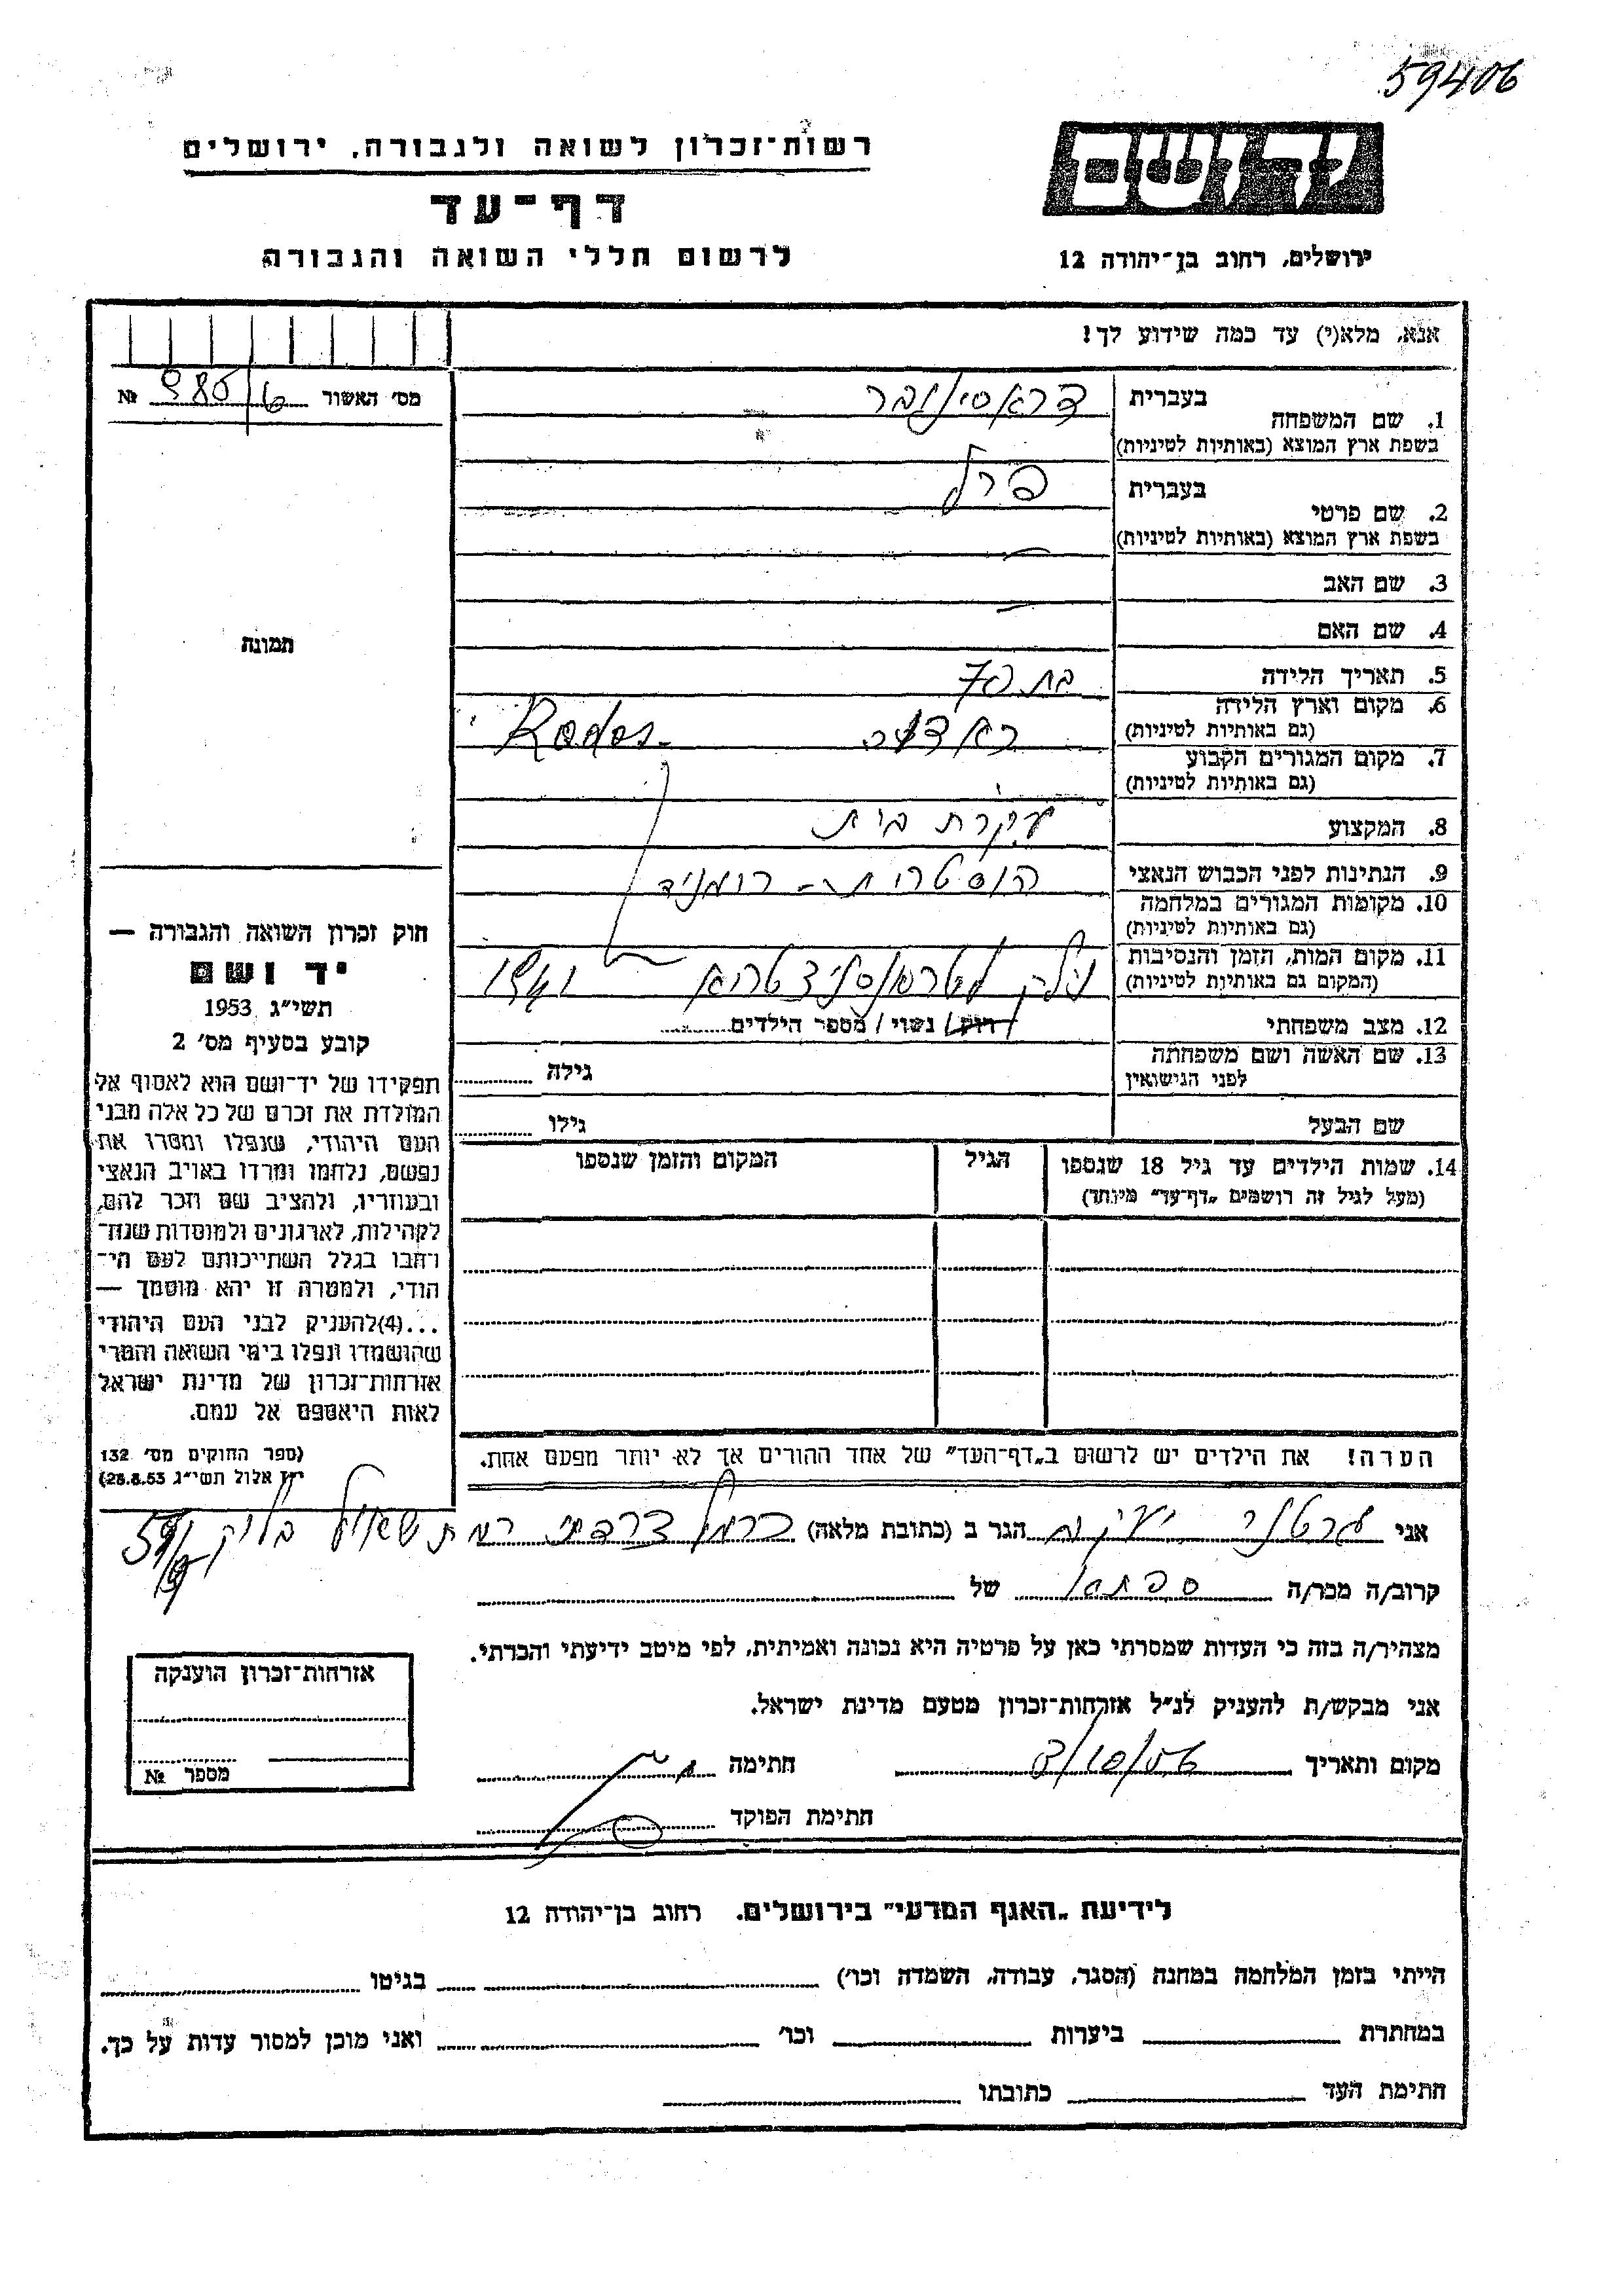 59406
יד ושם
רשות־זכרון לשואה ולגבורה, ירושלים
דף־עד
לרשום חללי השואה והגבורה
ירושלים, רחוב בן־יהודה 12
אנא, מלא(י) עד כמה שידוע לך!
מס׳ האשור № 980/6
1. שם המשפחה
בעברית
בשפת ארץ המוצא (באותיות לטיניות)
2. שם פרטי
בעברית פרל
בשפת ארץ המוצא (באותיות לטיניות)
3. שם האב
4. שם האם
5. תאריך הלידה בת 70
6. מקום וארץ הלידה
(גם באותיות לטיניות) Rados
7. מקום המגורים הקבוע
(גם באותיות לטיניות)
8. המקצוע עקרת בית
9. הנתינות לפני הכבוש הנאצי
10. מקומות המגורים במלחמה
(גם באותיות לטיניות)
11. מקום המות, הזמן והנסיבות
(המקום גם באותיות לטיניות) 1941
12. מצב משפחתי רווק/ נשוי / מספר הילדים
13. שם האשה ושם משפחתה
לפני הנישואין
גילה
שם הבעל
גילו
14. שמות הילדים עד גיל 18 שנספו
(מעל לגיל זה רושמים „דף־עד״ מיוחד)
הגיל
המקום והזמן שנספו
הערה! את הילדים יש לרשום ב„דף־העד״ של אחד ההורים אך לא יותר מפעם אחת.
תמונה
חוק זכרון השואה והגבורה —
יד ושם
תשי״ג 1953
קובע בסעיף מס׳ 2
תפקידו של יד־ושם הוא לאסוף אל
המולדת את זכרם של כל אלה מבני
העם היהודי, שנפלו ומסרו את
נפשם, נלחמו ומרדו באויב הנאצי
ובעוזריו, ולהציב שם וזכר להם,
לקהילות, לארגונים ולמוסדות שנח־
רבו בגלל השתייכותם לעם הי־
הודי, ולמטרה זו יהא מוסמך —
...(4)להעניק לבני העם היהודי
שהושמדו ונפלו בימי השואה והמרי
אזרחות־זכרון של מדינת ישראל
לאות היאספם אל עמם.
(ספר החוקים מס׳ 132
י״ז אלול תשי״ג 28.8.53)
אני הגר ב (כתובת מלאה) רמת שאול בלוק
קרוב/ה מכר/ה של
מצהיר/ה בזה כי העדות שמסרתי כאן על פרטיה היא נכונה ואמיתית, לפי מיטב ידיעתי והכרתי.
אני מבקש/ת להעניק לנ״ל אזרחות־זכרון מטעם מדינת ישראל.
מקום ותאריך 3/10/56 חתימה
חתימת הפוקד
אזרחות־זכרון הוענקה
מספר №
לידיעת „האגף המדעי״ בירושלים. רחוב בן־יהודה 12
הייתי בזמן המלחמה במחנה (הסגר, עבודה, השמדה וכו׳) בגיטו
במחתרת ביערות וכו׳ ואני מוכן למסור עדות על כך.
חתימת העד כתובתו